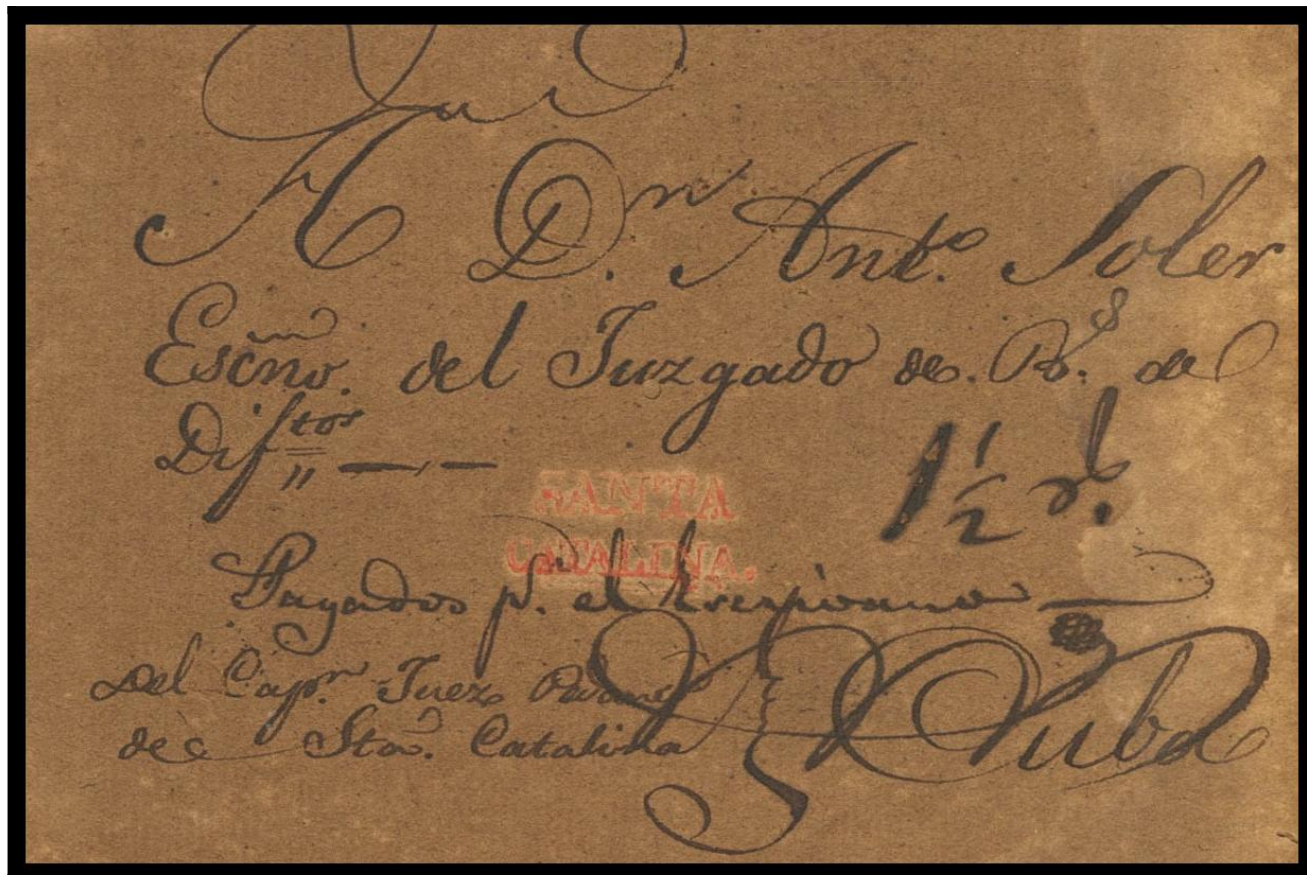 A Dn. Anto. Soler
Escno. del Juzgado de. Bs. de
Diftos
1 1/2 rl.
SANTA
CATALINA.
Pagados pr. el
Del Capn. Juez
de Sta. Catalina
Cuba